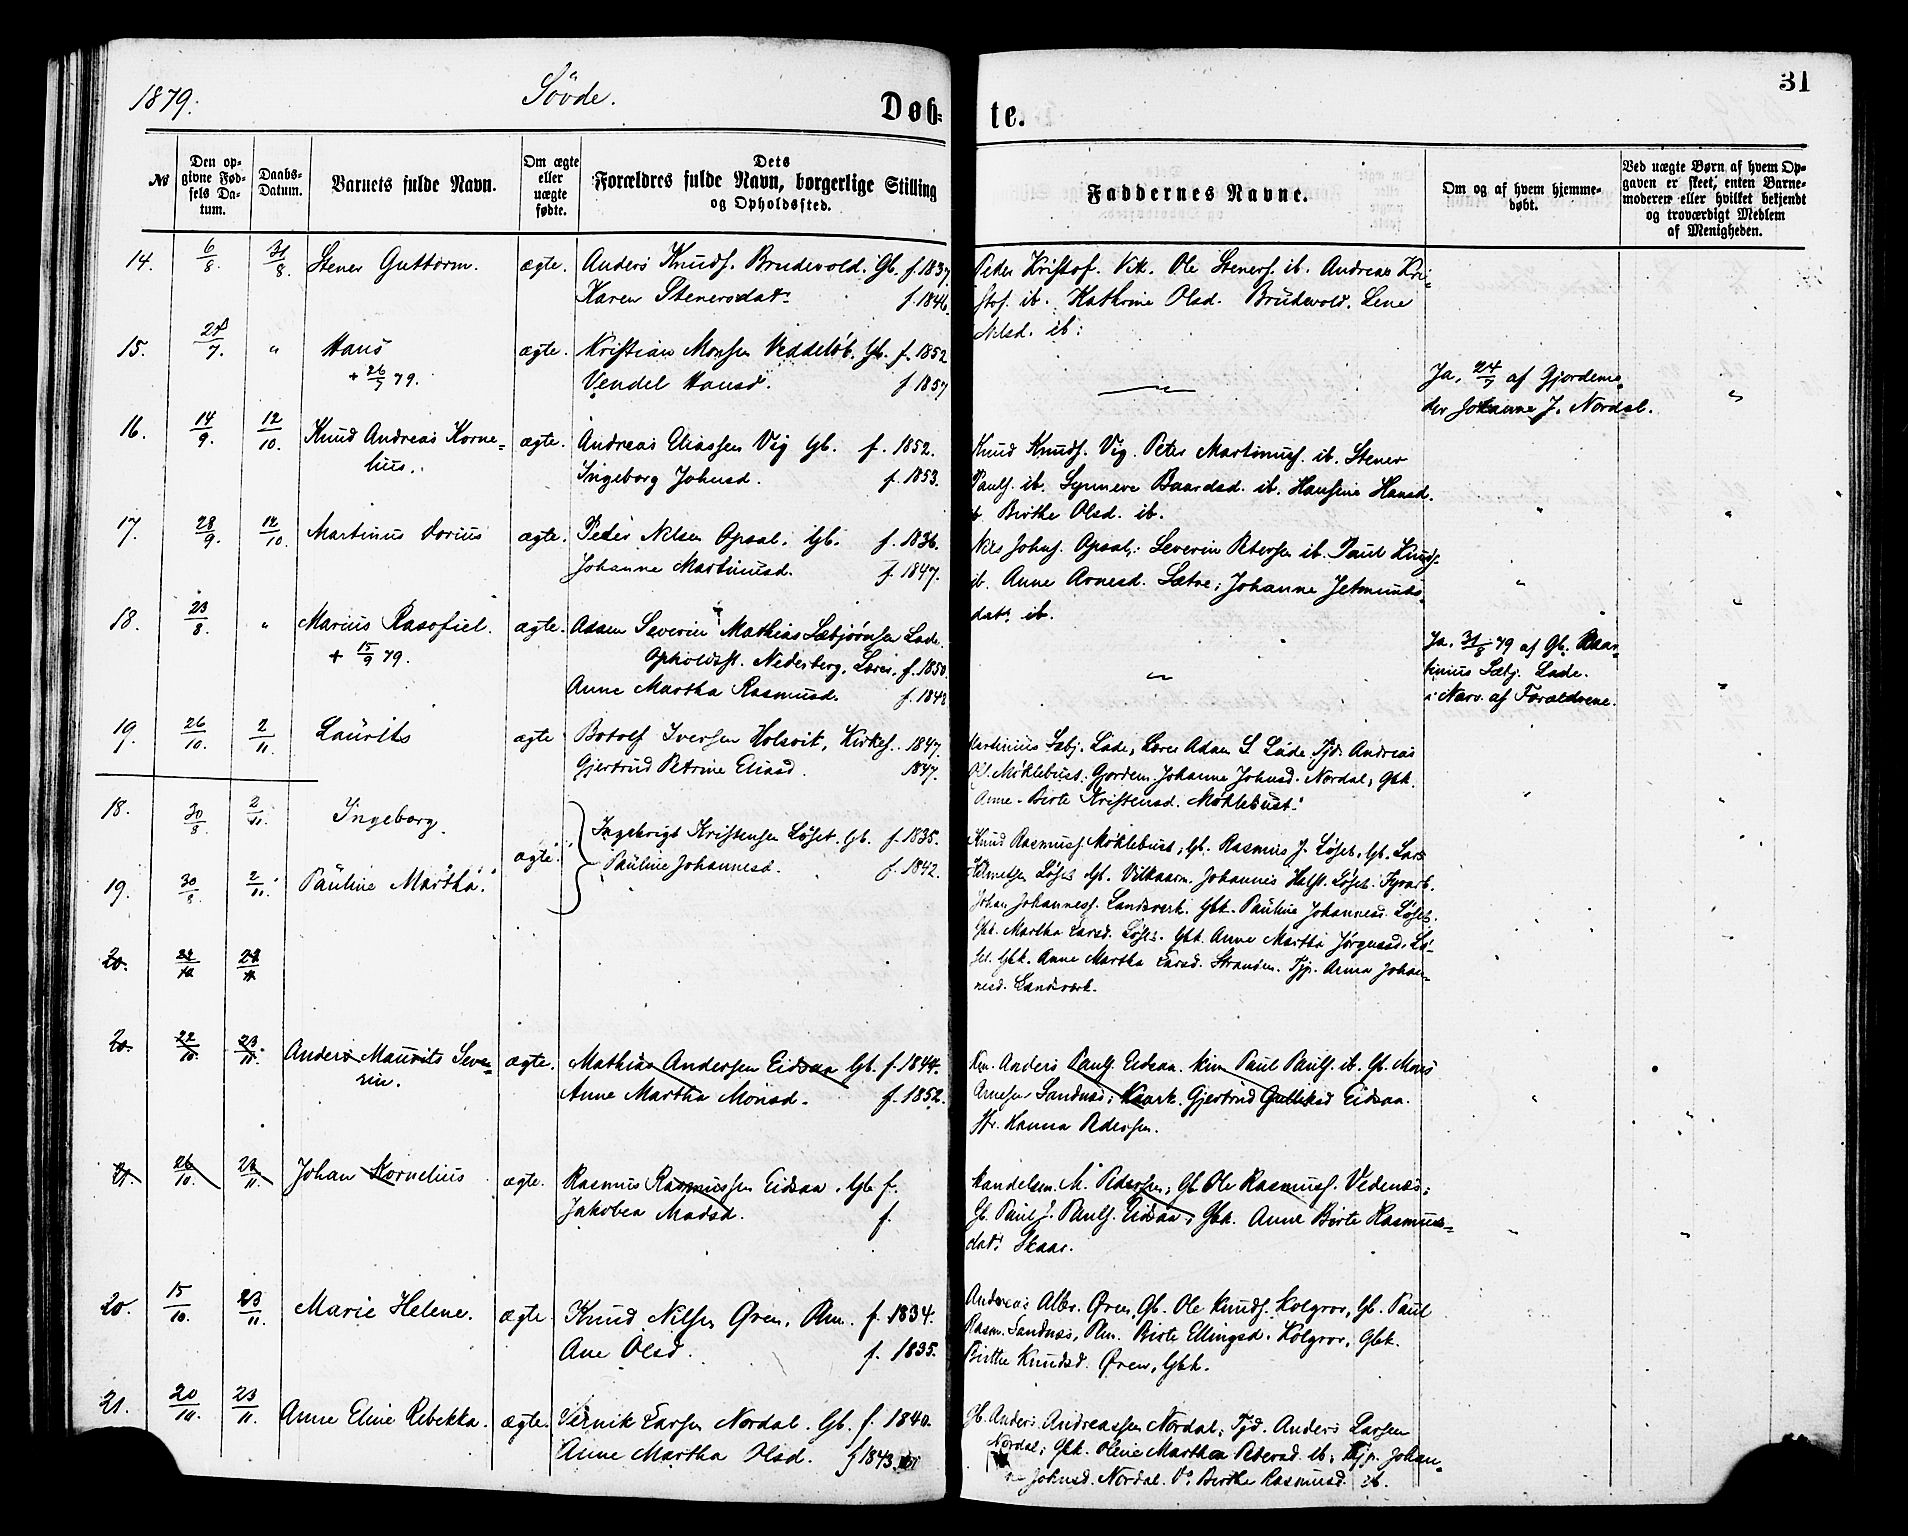 1879.
Søvde.
Døb-
te.
31
№
Den op-
givne Fød-
sels Da-
tum.
Daabs-
Datum.
Barnets fulde Navn.
Om ægte
eller
uægte
fødte.
Dets
Forældres fulde Navn, borgerlige Stilling
og Opholdssted.
Faddernes Navne.
Om og af hvem hjemme-
døbt.
Ved uægte Børn af hvem Op-
gaven er skeet, enten Barne-
moderen eller hvilket bekjendt
og troværdigt Medlem
af Menigheden.
14. 6/8. 31/8. Stener Guttorm. ægte. Anders Knuds. Brudevold. Gb. f. 1837.
Karen Stenersdatr f. 1846.
Peder Kristof. Vik. Ole Steners. ib. Andreas Kri-
stof. ib. Kathrine Olsd. Brudevold. Lene
Nelsd. ib:
15. 24/7. " Hans ægte. Kristian Monsen Veddeløb. Gb. f. 1852
+ 26/7 79. Vendel Hansd. f. 1857
Ja, 24/7 af Gjordemo-
der Johanne J. Nordal. "
16. 14/9. 12/10. Knud Andreas Korne-
lius. ægte. Andreas Eliassen Vig Gb. f. 1852.
Ingeborg Johnsd. f. 1853.
Knud Knuds. Vig. Peter Martinus. ib. Stener
Pauls. ib. Synneve Baardsd. ib. Hansine Hansd.
Birthe Olsd. ib. " "
17. 28/9. 12/10. Martinus Dorius ægte. Peder Nelsen Opsal. Gb. f. 1836.
Johanne Martinusd. f. 1847.
Nils Johns. Opsal; Severin Petersen ib. Paul Knuds.
ib. Anne Arnesd. Sætre; Johanne Jetmunds-
datr ib. " "
18. 23/8. " Marius Rasofiel. ægte. Adam Severin Mathias Sæbjørnsen Lade.
+ 15/9 79. Opholdsst. Nederberg, Lærer, f. 1850.
Anne Martha Rasmusd. f. 1848
Ja, 31/8 79 af Gb. Mar-
tinius Sæbj. Lade.
i Narv. af Forældrene. "
19. 26/10. 2/11. Laurits ægte Botolf Iversen Holsvik, Kirkes. 1847.
Gjertrud Petrine Eliasd. 1847.
Martinius Sæbj. Lade, Lærer Adam S. Lade. Tjd. Andreas
Ol. Møklebust. Gjordem. Johanne Johnsd. Nordal, Gbk.
Anne-Birte Kristensd. Møklebust. " "
18. 30/8. 2/11. Ingeborg.
ægte. Ingebrigt Kristensen Løset. Gb. f. 1835.
Pauline Johannesd. f. 1842.
19. 30/8. 2/11. Pauline Martha.
Knud Rasmus. Møklebust, Gb. Rasmus J. Løset. Gb. Lars
Løset Gb. Vilkaarm. Johannes Halst. Løset. Fyrarb.
Johan Johanness. Landsverk. Gbk. Pauline Johannesd. Løset.
Gbk. Martha Larsd. Løset. Gbk. Anne Martha Jørgensd. Lø-
set. Gbk. Anne Martha Larsd. Stranden. Tjp. Anna Johan-
nesd. Landsverk.
20. 22/10 23/11
20. 22/10. 23/11. Anders Maurits Seve-
rin. ægte. Mathias Andersen Eidsaa Gb. f. 1844.
Anne Martha Monsd. f. 1852.
Km. Anders Pauls. Eidsaa. Km. Paul Pauls. ib. Gb. Mons
Arnesen Sandnæs; Gjertrud Gulleksd Eidsaa.
Fr. Hanna Pedersen. " "
21. 26/10. 23/11. Johan Kornelius ægte. Rasmus Rasmussen Eidsaa. Gb. f.
Jakobea Madsd. f.
Handelsm. M. Pedersen, Gb. Ole Rasmus. Vedenæs;
Gb. Paul J. Pauls. Eidsaa, Gbk. Anne Birte Rasmus-
datr Skaar. " "
20. 15/10. 23/11. Marie Helene. ægte. Knud Nilsen Øren. Plm. f. 1834.
Ane Olsd. f. 1835.
Andreas Albr. Øren, Gb. Ole Knuds. Kolgrov, Gb. Paul
Rasm. Sandnæs, Plm. Birte Ellingsd. Kolgrov, Gbk.
Birthe Knudsd. Øren, Gbk.
21. 20/10. 23/11. Anne Eline Rebekka. ægte. Vernik Larsen Nordal. Gb. f. 1840.
Anne Martha Olsd. f 1843.
Gb. Anders Andreassen Nordal, Tjd. Anders Larsen
Nordal; Gbk. Oline Marthea Pedersd. ib, Tjp. Johan-
ne Johnsd. Nordal. Do Birthe Rasmusd. ib.